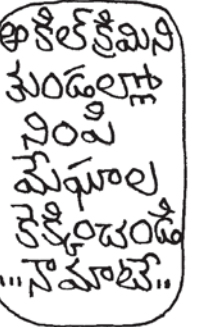 ఆ కిల్‌క్రిమిని
కుండల్లో
నింపి
మేఘాల
కెక్కించండి
...నామాటే..